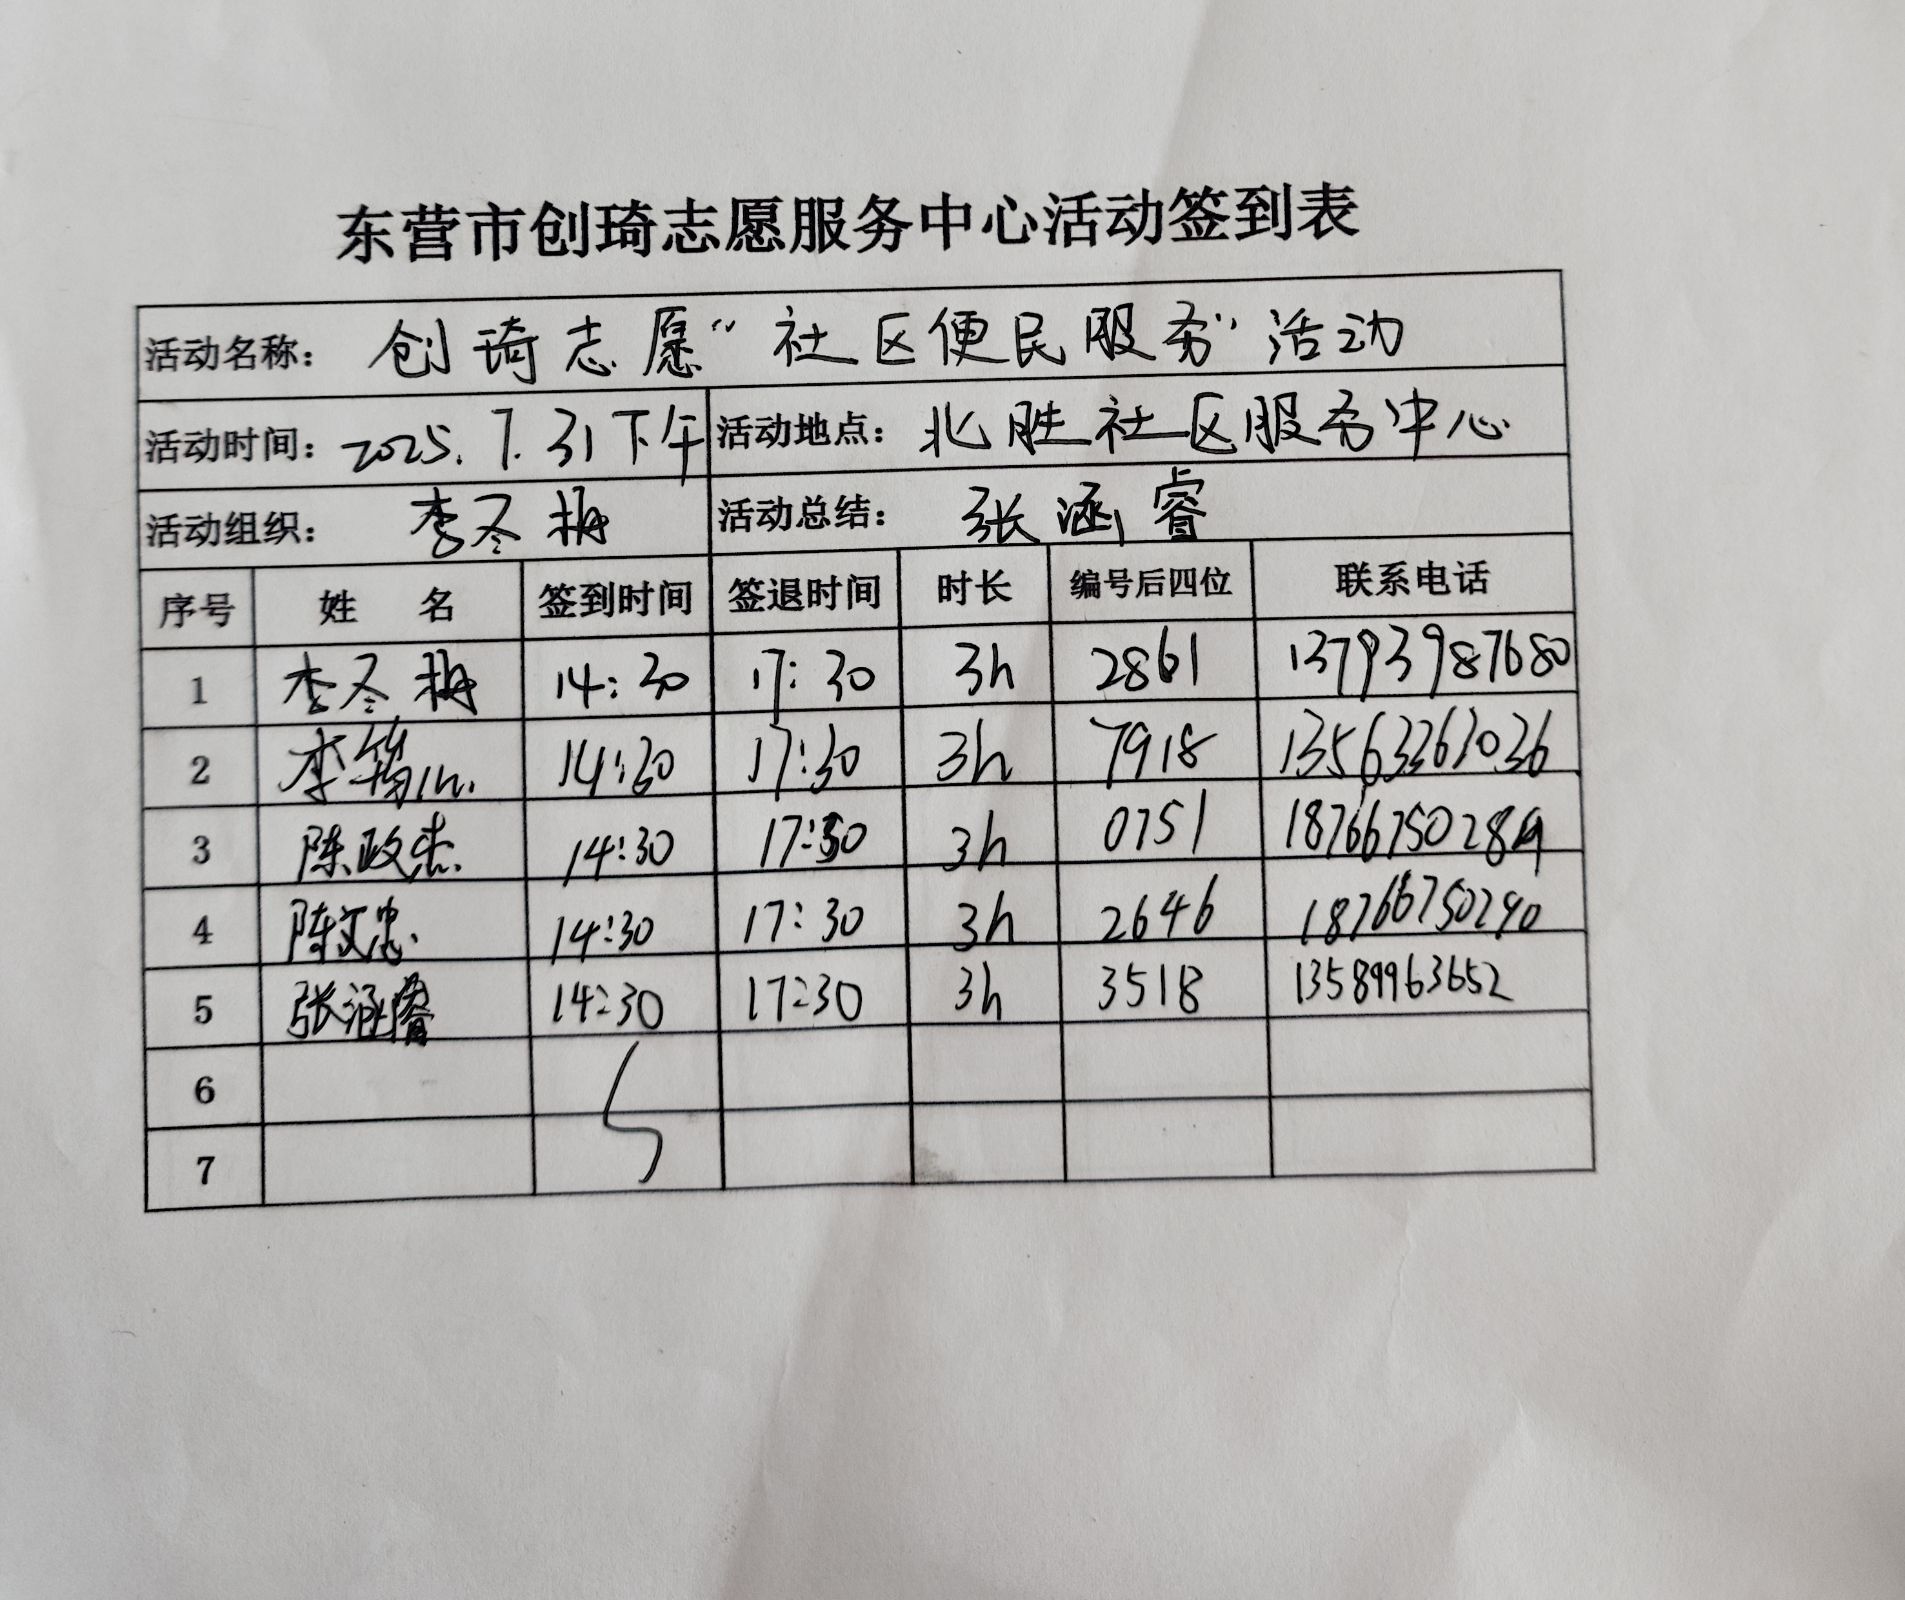 东营市创琦志愿服务中心活动签到表
活动名称: 创琦志愿“社区便民服务”活动
活动时间: 2025.7.31下午 活动地点: 北胜社区服务中心
活动组织: 李冬梅 活动总结: 张涵睿
序号 姓 名 签到时间 签退时间 时长 编号后四位 联系电话
1 李冬梅 14:30 17:30 3h 2861 13793987680
2 李 14:30 17:30 3h 7918
3 陈政杰 14:30 17:30 3h 0751 18766750289
4 陈文忠 14:30 17:30 3h 2646 18766750290
5 张涵睿 14:30 17:30 3h 3518 13589963652
6
7